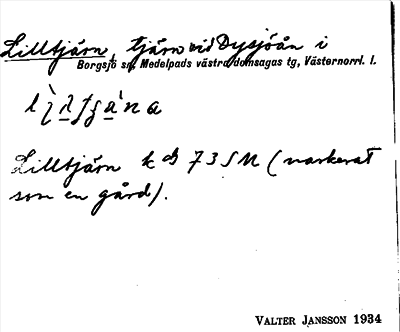 Lilltjärn, tjärn vid Dysjöån i
Borgsjö sn, Medelpads västra domsagas tg, Västernorrl. l.
Lilltjärn k bl 73 SM (markerat
som en gård).
VALTER JANSSON 1934